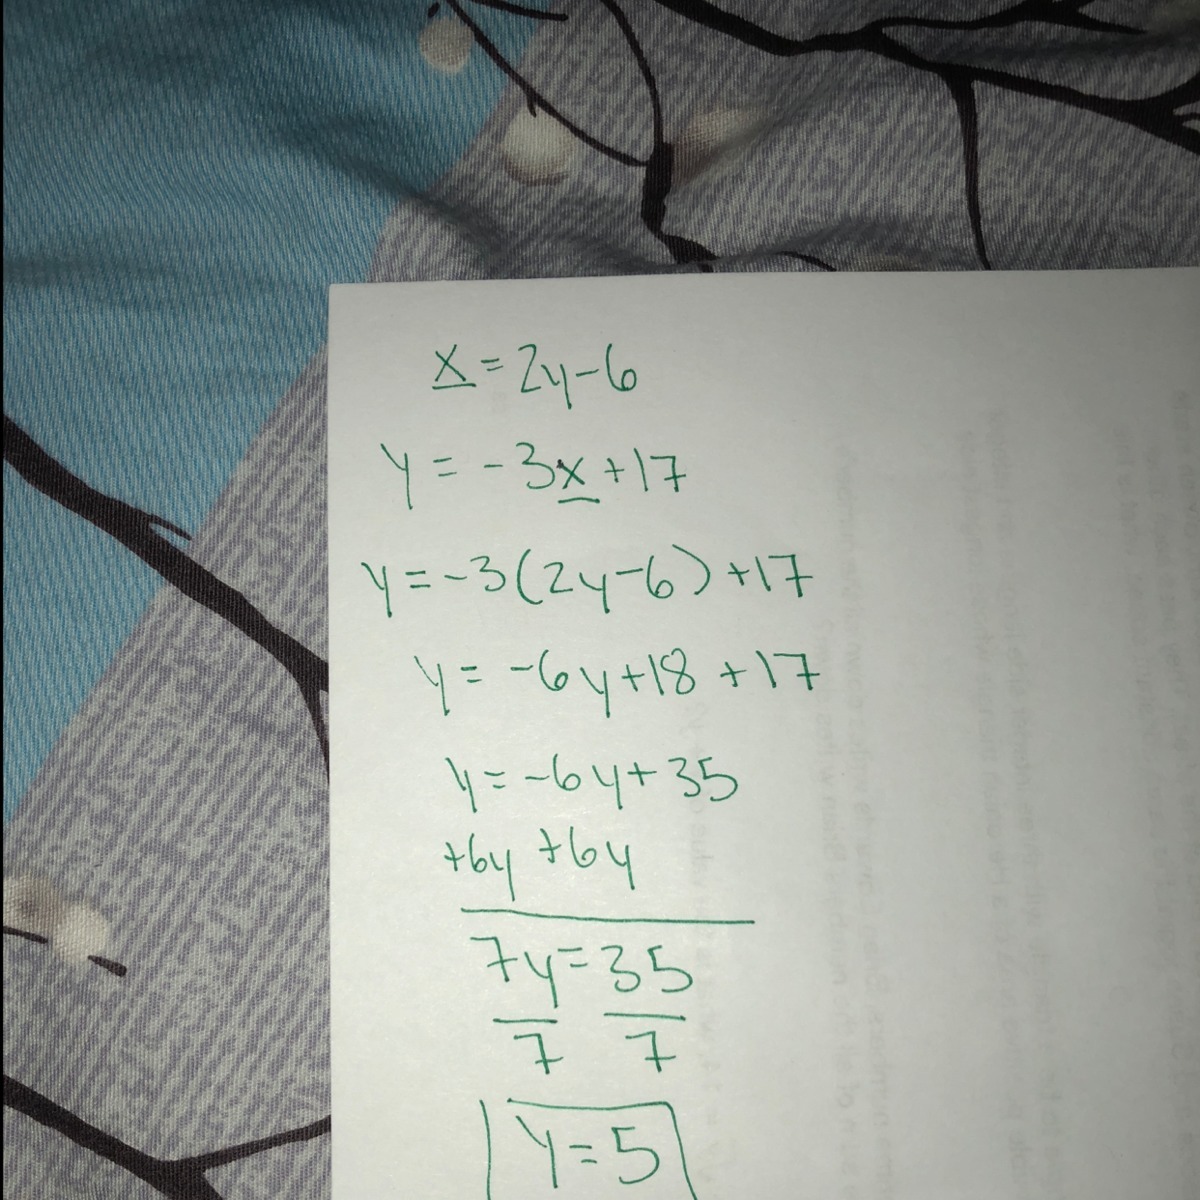 x=2y-6
y=-3x+17
y=-3(2y-6)+17
y=-6y+18+17
y=-6y+35
+6y +6y
7y=35
7 7
y=5